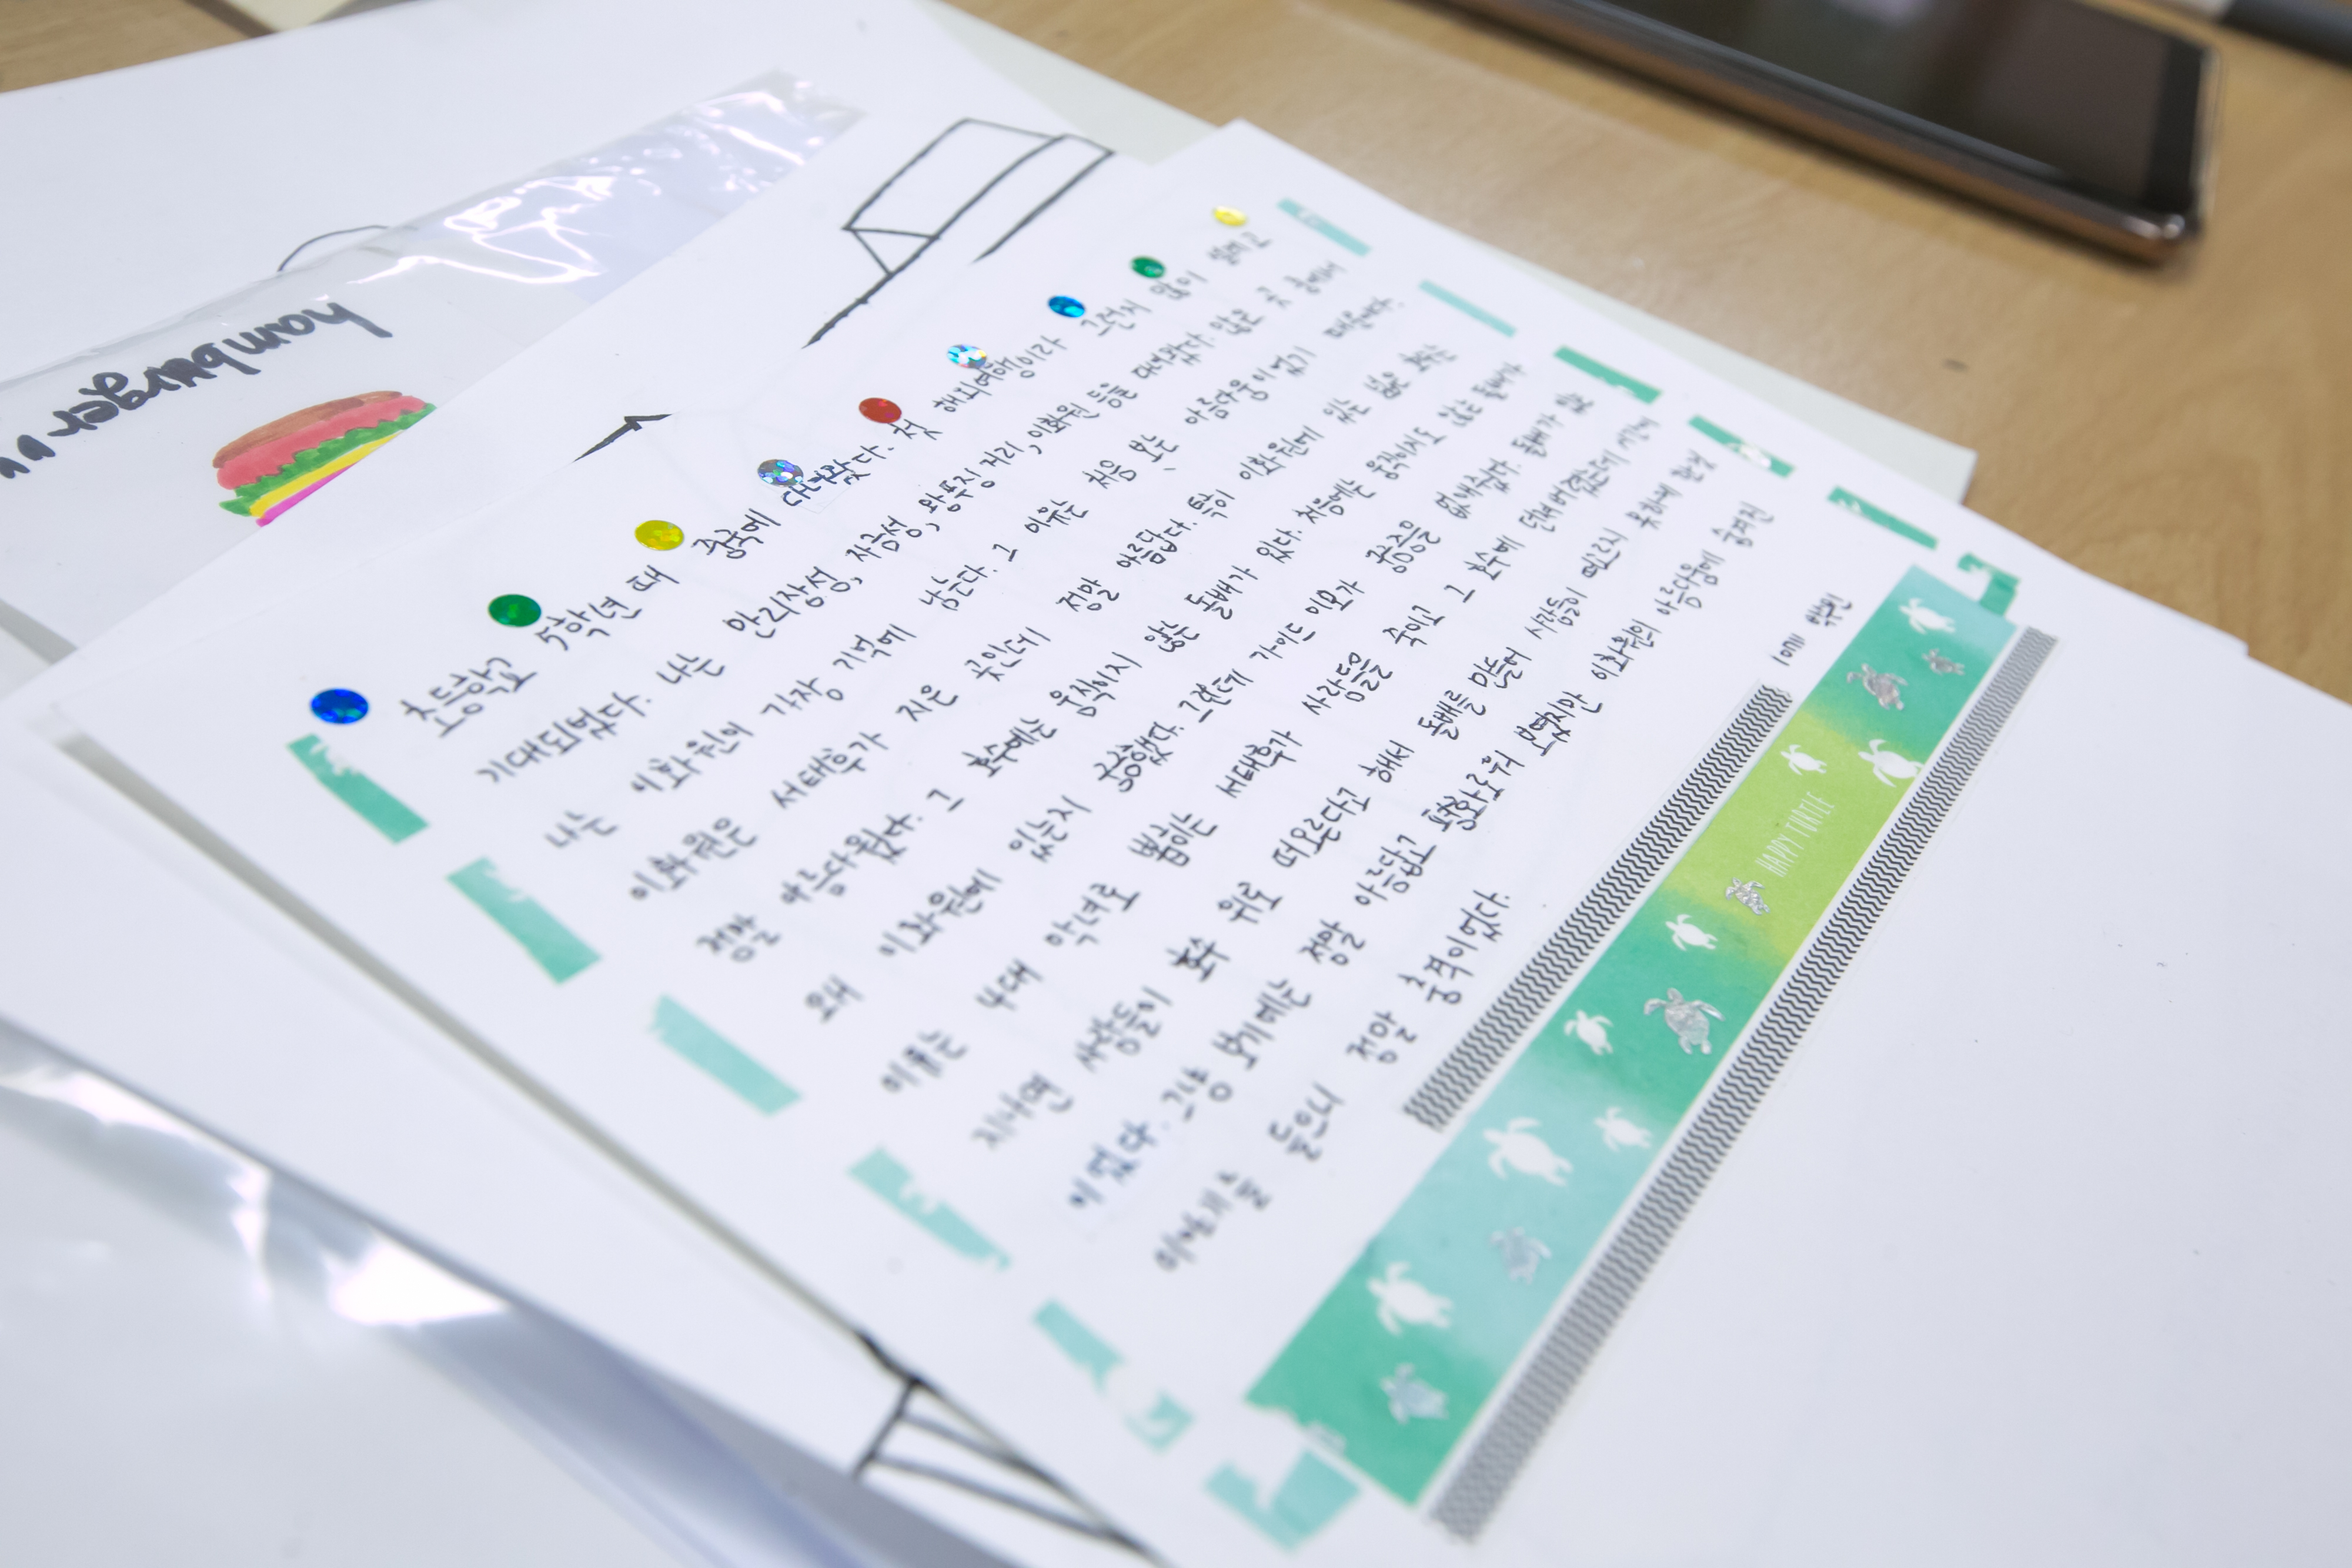 hamburger
초등학교 5학년 때 중국에 다녀왔다. 첫 해외여행이라 그런지 많이 설레고
기대되었다. 나는 만리장성, 자금성, 왕푸징 거리, 이화원 등을 다녀왔다. 많은 곳 중에서
나는 이화원이 가장 기억에 남는다. 그 이유는 처음 보는 아름다움이었기 때문이다.
이화원은 서태후가 지은 곳인데 정말 아름답다. 특히 이화원에 있는 넓은 호수는
정말 아름다웠다. 그 호수에는 움직이지 않는 돌배가 있다. 처음에는 움직이지도 않는 돌배가
왜 이화원에 있는지 궁금했다. 그런데 가이드 이모가 궁금증을 없애주셨다. 돌배가
이유는 4대 악녀로 뽑히는 서태후가 사람들을 죽이고 그 호수에 던져버렸는데
지나면 사람들이 호수 위로 떠오른다고 해서 돌배를 만들어 사람들이 떠오르지 못하게 한 것
이었다. 그냥 보기에는 정말 아름답고 평화로워 보였지만 이화원의 아름다움에 숨겨진
이야기를 들으니 정말 충격이었다.
HAPPY TURTLE